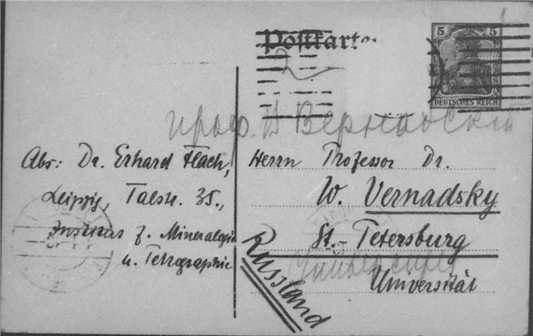 Postkarte
5 5
DEUTSCHES REICH
проф. В Вернадский
Abs: Dr. Erhard Flach,
Leipzig, Talstr. 35.,
Institut f. Mineralogie
u. Petrographie
Herrn Professor Dr.
W. Vernadsky
St.-Petersburg
Universität
Russland